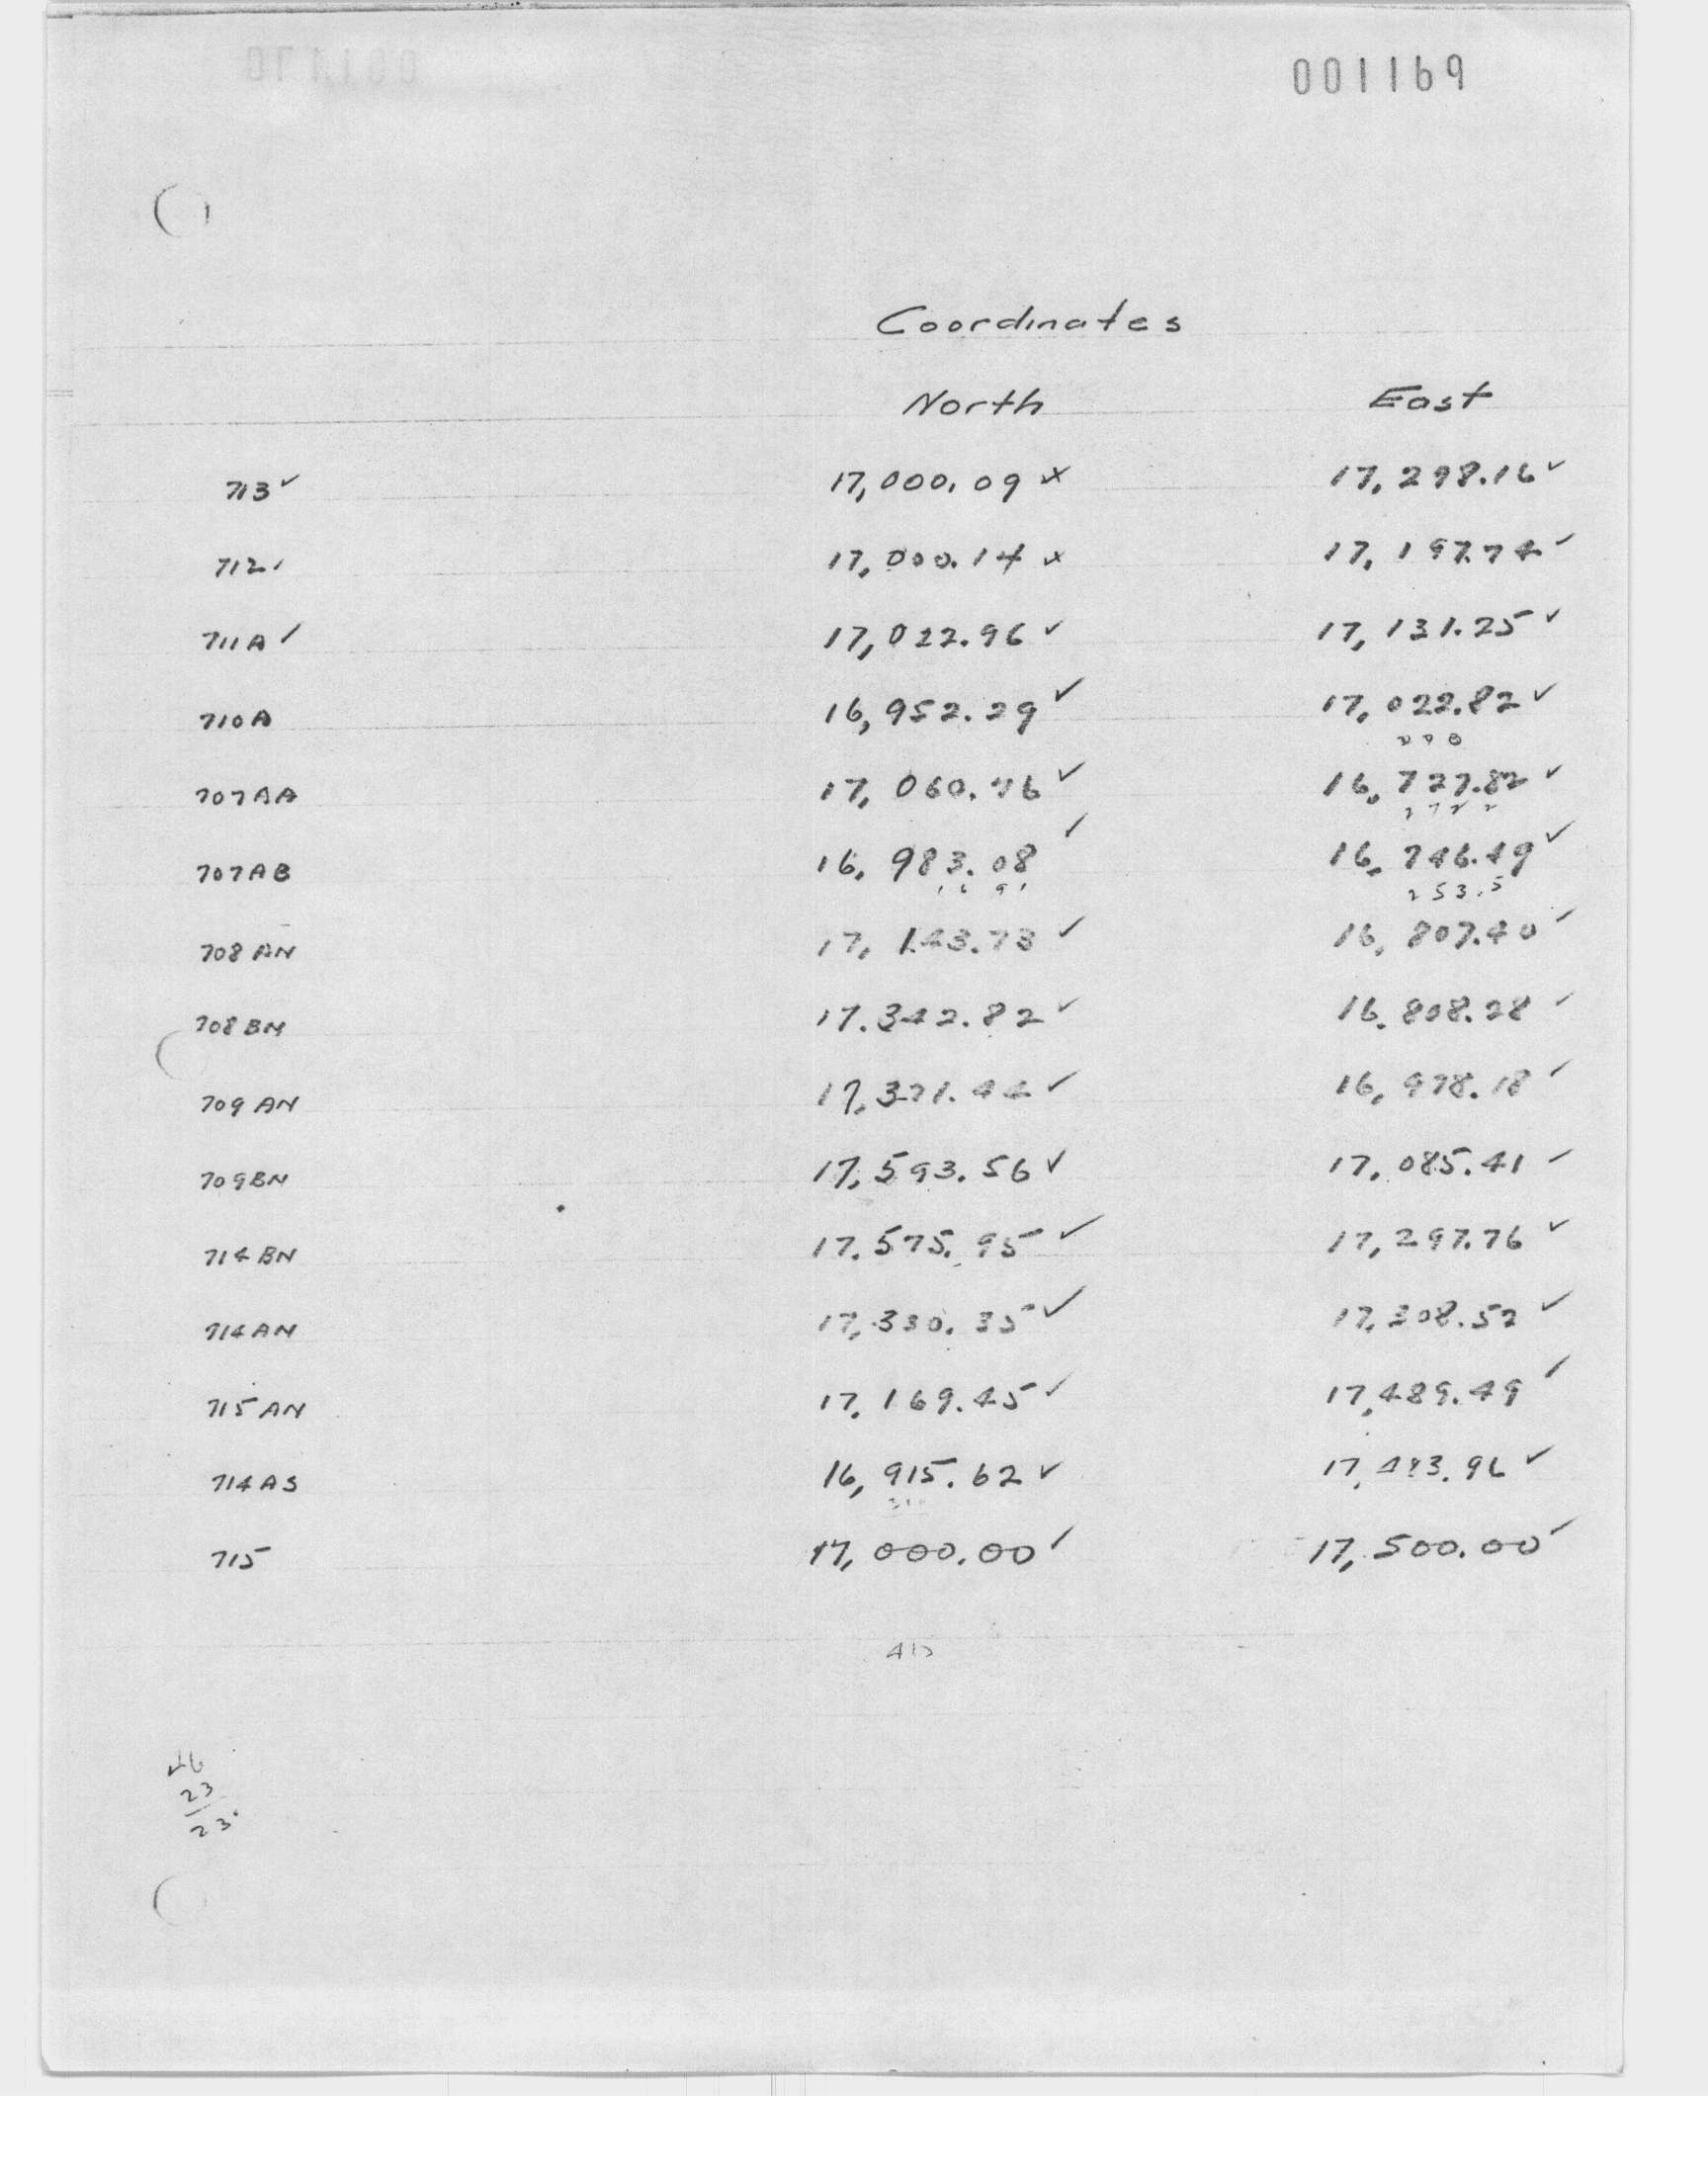 001169
Coordinates
North East
713 ✓ 17,000.09 x 17,298.16 ✓
712 ✓ 17,000.14 x 17,197.74 ✓
711A ✓ 17,022.96 ✓ 17,131.25 ✓
710A 16,952.29 ✓ 17,022.82 ✓
707AA 17,060.76 ✓ 16,727.82 ✓
707AB 16,983.08 ✓ 16,746.49 ✓
253.5
708AN 17,143.73 ✓ 16,807.40 ✓
708BN 17.342.82 ✓ 16.808.28 ✓
709AN 17,371.44 ✓ 16,978.18 ✓
709BN 17,593.56 ✓ 17,085.41 ✓
714BN 17.575.95 ✓ 17,297.76 ✓
714AN 17,330.35 ✓ 17,308.52 ✓
715AN 17,169.45 ✓ 17,489.49 ✓
714AS 16,915.62 ✓
715 17,000.00 ✓ 17,500.00 ✓
46
23
23